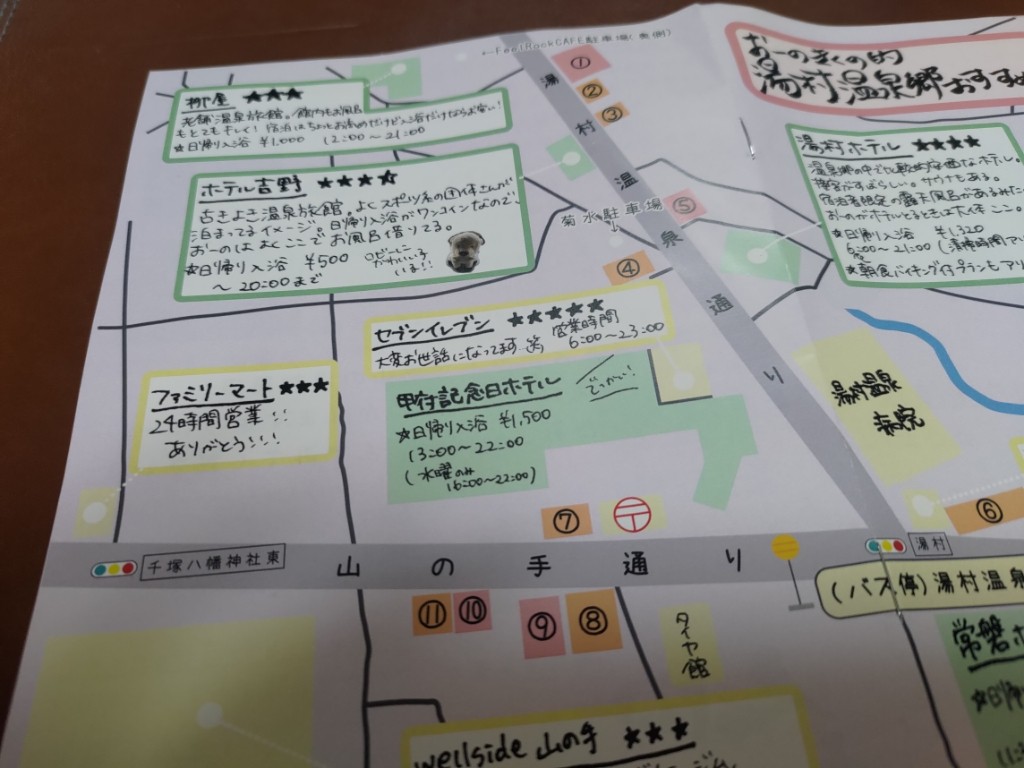 ←FeelRockCAFE駐車場(奥側)
おーのまくの的
湯村温泉郷おすすめ
柳屋 ★★★
老舗温泉旅館。館内もお風呂
もとてもキレイ! 宿泊はちょっとお高めだけど入浴だけならお安い!
☆日帰り入浴 ¥1,000 12:00〜21:00
ホテル吉野 ★★★★
古きよき温泉旅館。よくスポーツ名の団体さんが
泊まってるイメージ。日帰り入浴がワンコインなので、
おーのはよくここでお風呂借りてる。
☆日帰り入浴 ¥500
〜20:00まで
ロビーに
かわいい子
いる!!
湯村ホテル ★★★★
温泉郷の中でも比較的
接客がすばらしい。サウナもある。
宿泊者限定の露天風呂があるみたい
☆日帰り入浴 ¥1,320
6:00〜21:00 (清掃時間アリ
☆朝食バイキング付プランもアリ
湯村温泉通り
① ② ③
菊水駐車場 ⑤
④
セブンイレブン ★★★★★
大変お世話になってます 笑
営業時間
6:00〜23:00
ファミリーマート ★★★
24時間営業!!
ありがとう!!!
甲府記念日ホテル
でっかい!
☆日帰り入浴 ¥1,500
13:00〜22:00
(水曜のみ
16:00〜22:00)
湯村温泉
病院
⑥
⑦ 〒
千塚八幡神社東
山の手通り
湯村
(バス停)湯村温泉
⑪ ⑩ ⑨ ⑧
タイヤ館
常磐ホ
☆日帰り
wellside 山の手 ★★★